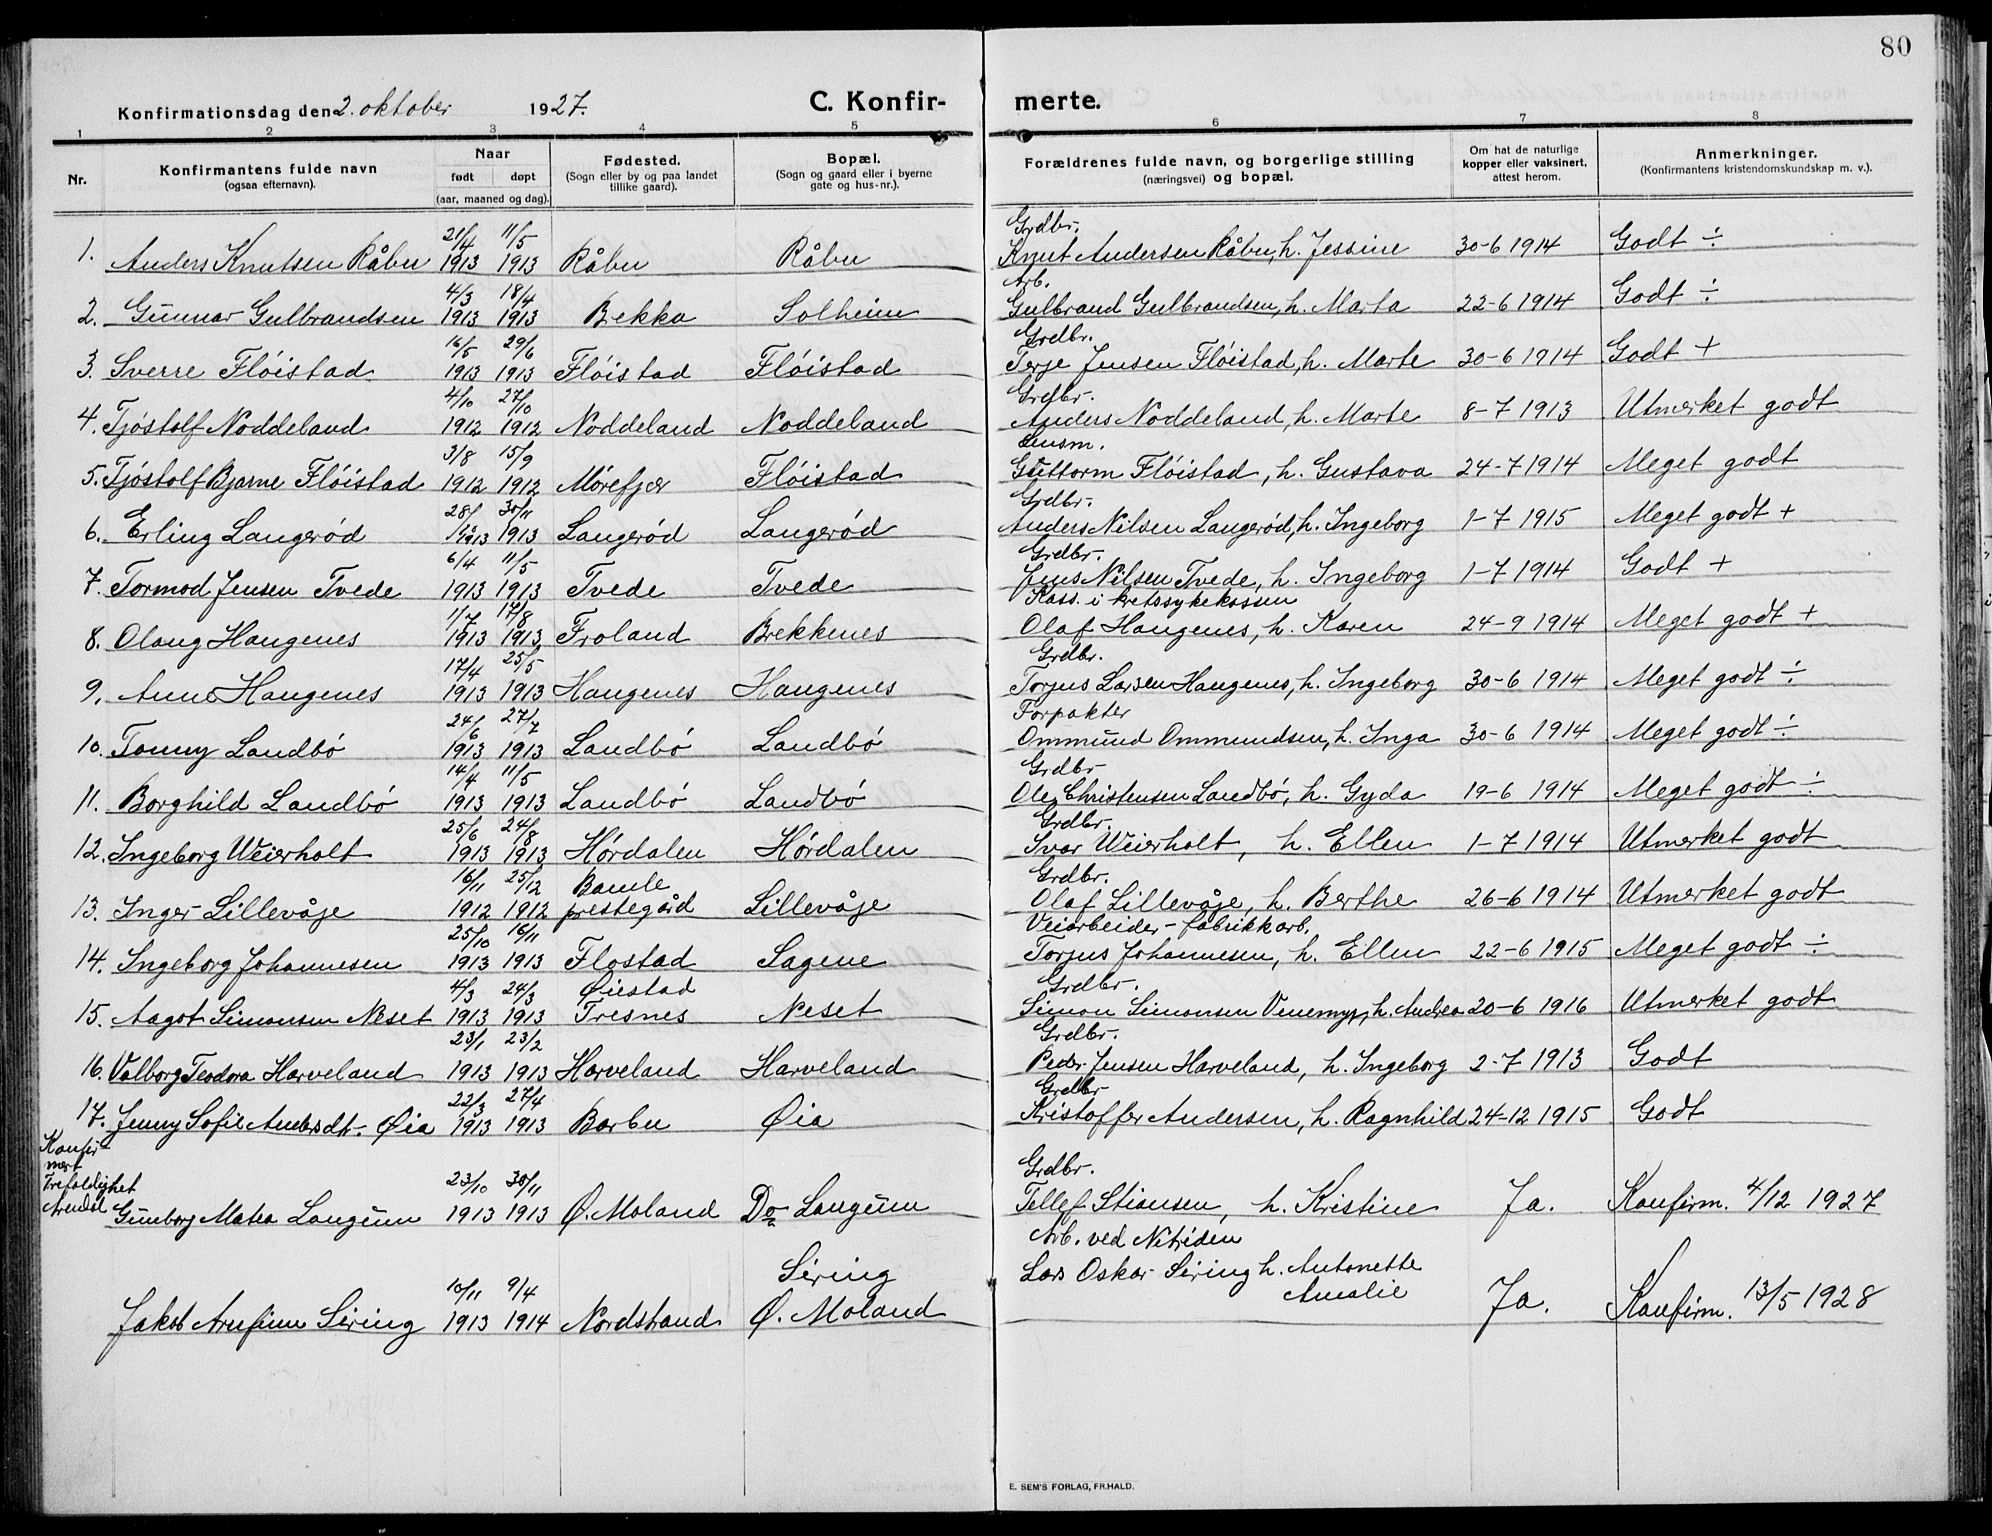 80
Konfirmationsdag den 2. oktober 1927. C. Konfirmerte.
1 2 3 4 5 6 7 8
Nr. Konfirmantens fulde navn (ogsaa efternavn). Naar født døpt (aar, maaned og dag). Fødested. (Sogn eller by og paa landet tillike gaard). Bopæl. (Sogn og gaard eller i byerne gate og hus-nr.). Forældrenes fulde navn, og borgerlige stilling (næringsvei) og bopæl. Om hat de naturlige kopper eller vaksinert, attest herom. Anmerkninger. (Konfirmantens kristendomskundskap m. v.).
21/4 11/5 Grdbr.
1. Anders Knutsen Råbu 1913 1913 Råbu Råbu Knut Andersen Råbu, h. Jessine 30-6 1914 Godt ÷
4/3 18/4 Arb.
2. Gunnar Gulbrandsen 1913 1913 Bekka Solheim Gulbrand Gulbrandsen, h. Marta 22-6 1914 Godt ÷
16/5 29/6 Grdbr.
3. Sverre Fløistad 1913 1913 Fløistad Fløistad Terje Jensen Fløistad, h. Marte 30-6 1914 Godt +
4/10 27/10 Grdbr.
4. Tjøstolf Noddeland 1912 1912 Noddeland Noddeland Anders Noddeland, h. Marte 8-7 1913 Utmerket godt
3/8 15/9 Lensm.
5. Tjøstolf Bjarne Fløistad 1912 1912 Mørefjær Fløistad Guttorm Fløistad, h. Gustava 24-7 1914 Meget godt
28/ 30/11 Grdbr.
6. Erling Langerød 1913 1913 Langerød Langerød Anders Nilsen Langerød, h. Ingeborg 1-7 1915 Meget godt +
6/4 11/5 Grdbr.
7. Tormod Jensen Tvede 1913 1913 Tvede Tvede Jens Nilsen Tvede, h. Ingeborg 1-7 1914 Godt +
1/7 17/8 Kass. i kretssykekassen
8. Olaug Haugenes 1913 1913 Froland Brekkenes Olaf Haugenes, h. Karen 24-9 1914 Meget godt +
17/4 25/5 Grdbr.
9. Anne Haugenes 1913 1913 Haugenes Haugenes Torjus Larsen Haugenes, h. Ingeborg 30-6 1914 Meget godt ÷
24/6 27/7 Forpakter
10. Tonny Landbø 1913 1913 Landbø Landbø Ommund Ommundsen, h. Inga 30-6 1914 Meget godt ÷
14/4 11/5 Grdbr
11. Borghild Landbø 1913 1913 Landbø Landbø Ole Christensen Landbø, h. Gyda 19-6 1914 Meget godt ÷
25/6 24/8 Grdbr.
12. Ingeborg Weierholt 1913 1913 Hørdalen Hørdalen Ivar Weierholt, h. Ellen 1-7 1914 Utmerket godt
16/11 25/12 Bamle Grdbr.
13. Inger Lillevåje 1912 1912 prestegård Lillevåje Olaf Lillevåje, h. Berthe 26-6 1914 Utmerket godt
25/10 16/11 Veiarbeider - fabrikkarb.
14. Ingeborg Johannesen 1913 1913 Flostad Sagene Torjus Johannesen, h. Ellen 22-6 1915 Meget godt ÷
4/3 24/3 Øiestad Grdbr.
15. Aagot Simonsen Neset 1913 1913 Fresnes Neset Simon Simonsen Venemyr, h. Andrea 20-6 1916 Utmerket godt
23/1 23/2 Grdbr.
16. Valborg Teodora Harveland 1913 1913 Harveland Harveland Peder Jensen Harveland, h. Ingeborg 2-7 1913 Godt
22/3 27/4 Grdbr
17. Jenny Sofie Andersdt. Øia 1913 1913 Barbu Øia Kristoffer Andersen, h. Ragnhild 24-12 1915 Godt
Konfirmert
Trefoldighet
Arendal
23/10 30/11 Grdbr.
Gunborg Matea Langum 1913 1913 Ø. Moland Do Langum Tellef Stiansen, h. Kristine Ja. Konfirm. 4/12 1927
Arb. ved Nitriden
10/11 9/4 Siring Lars Oskar Siring h. Antonette Amalie
Jakob Arnfinn Siring 1913 1914 Nordstrand Ø. Moland Ja. Konfirm. 13/5 1928
E. SEM'S FORLAG, FR.HALD.